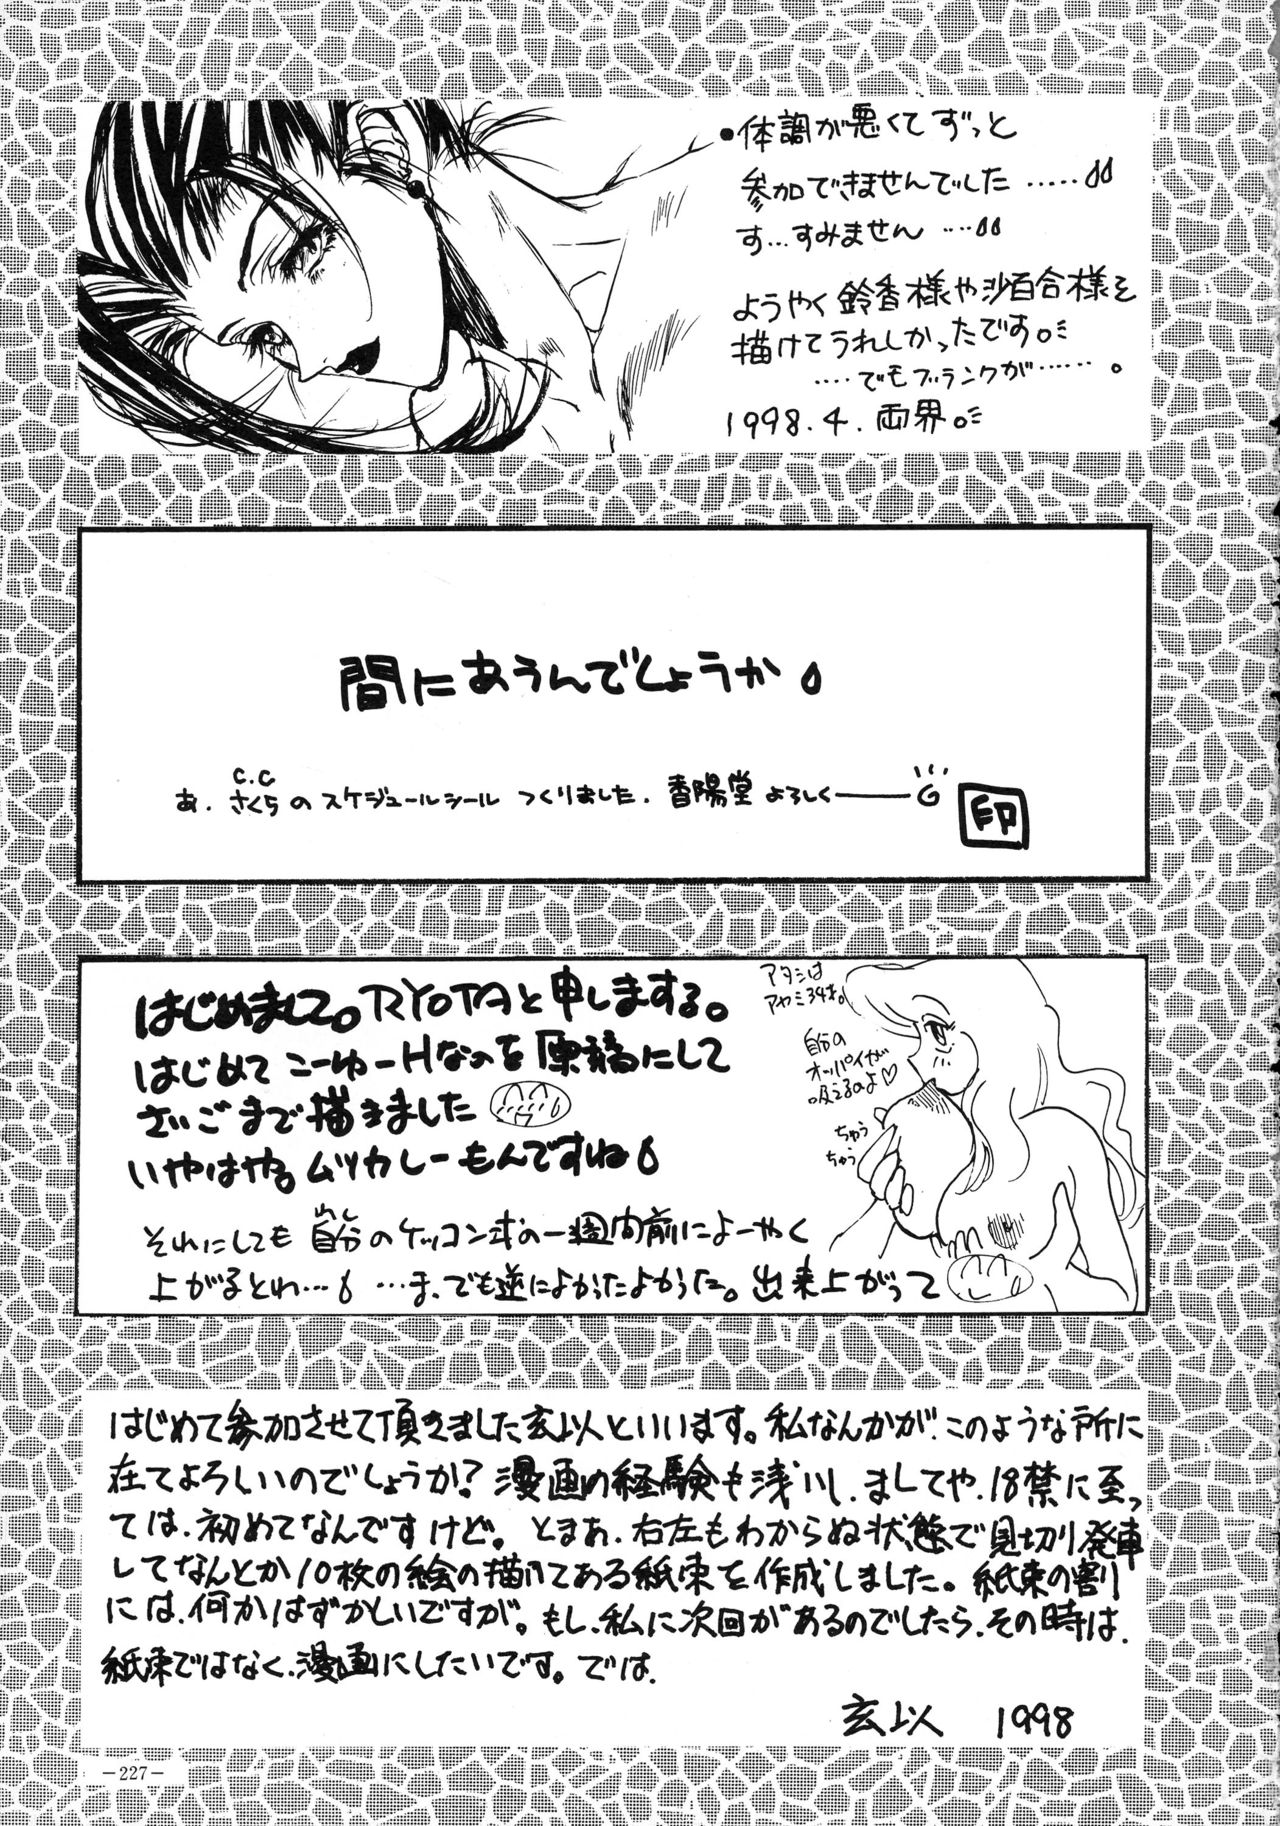 ・体調が悪くてずっと
参加できませんでした……
す…すみません…
ようやく鈴香様や沙百合様を
描けてうれしかったです。
……でもブランクが……。
1998.4.両界。
間にあうんでしょうか
C.C
あ.さくらのスケジュールシールつくりました.香陽堂よろしく――G
印
はじめまして。RYOTAと申しまする。
はじめてこーゆーHなのを原稿にして
さいごまで描きました
いやはや。ムツカしーもんですね
それにしても自分のケッコン式の一週間前によーやく
上がるとわ…。…ま、でも逆によかったよかった。出来上がって
アタシは
アヤミ34才。
自分の
オッパイが
吸えるのよ♡
ちゅう
ちゅう
はじめて参加させて頂きました玄以といいます。私なんかが、このような所に
在てよろしいのでしょうか?漫画の経験も浅いし、ましてや、18禁に至っ
ては、初めてなんですけど。とまあ、右左もわからぬ状態で見切り発車
してなんとか10枚の絵の描いてある紙束を作成しました。紙束の割り
には、何かはずかしいですが。もし、私に次回があるのでしたら、その時は、
紙束ではなく、漫画にしたいです。では、
玄以 1998
-227-